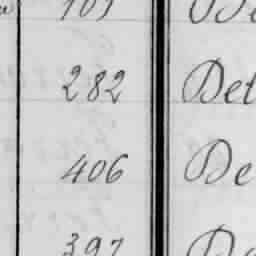 282 Det
406 De
397 De